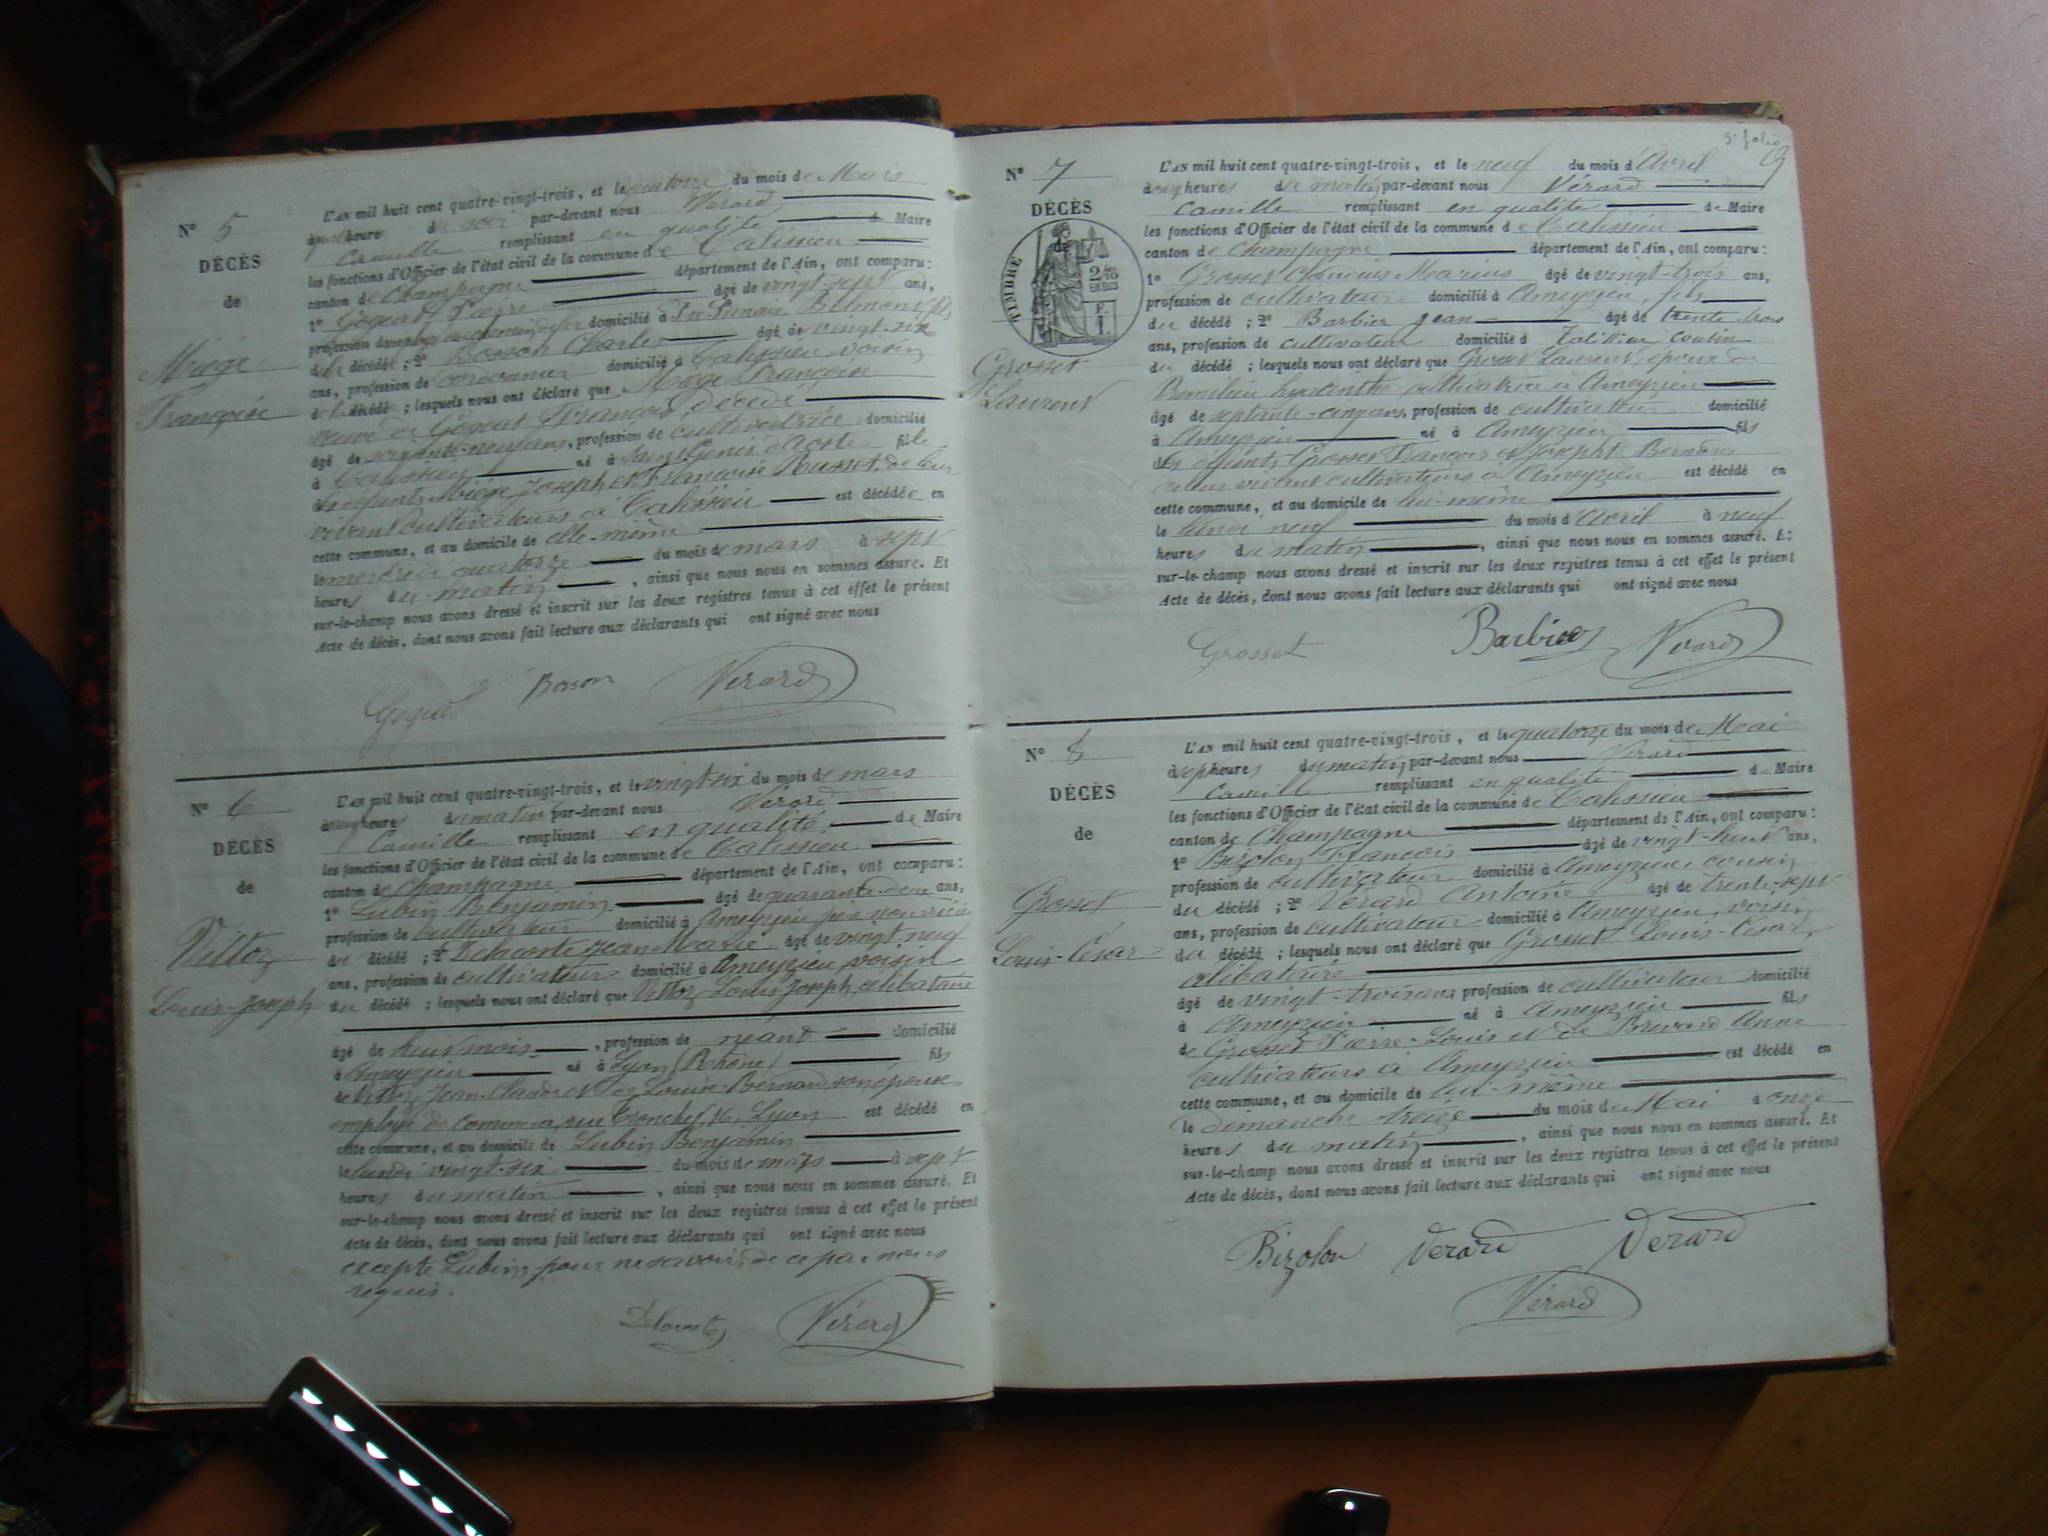 N° 5
DÉCÈS
de
Miège
Françoise
L'AN mil huit cent quatre-vingt-trois, et le quatorze du mois de Mars
heure du soir par-devant nous Vérard
Camille remplissant en qualité de Maire
les fonctions d'Officier de l'état civil de la commune de Talissieu
canton de Champagne département de l'Ain, ont comparu :
1° Gogeat Pierre âgé de vingt-sept ans,
profession domicilié à
décédé ; 2° Bosson Charles âgé de vingt-six
ans, profession de cordonnier domicilié à Talissieu, voisin
de décédé ; lesquels nous ont déclaré que Miège Françoise
veuve de Gogeat François décédé
âgé de soixante-neuf ans, profession de cultivatrice domicilié
à Talissieu né à Saint Genix d'Aoste fille
des défunts Miège Joseph et Françoise Russet, de leur
vivant cultivateurs à Talissieu est décédée en
cette commune, et au domicile de elle-même
le mercredi quatorze du mois de mars à sept
heures du matin, ainsi que nous nous en sommes assuré. Et
sur-le-champ nous avons dressé et inscrit sur les deux registres tenus à cet effet le présent
Acte de décès, dont nous avons fait lecture aux déclarants qui ont signé avec nous
Gogeat Bosson Vérard
N° 6
DÉCÈS
de
Vittoz
Louis-Joseph
L'AN mil huit cent quatre-vingt-trois, et le vingt-six du mois de mars
à heures du matin par-devant nous Vérard
Camille remplissant en qualité de Maire
les fonctions d'Officier de l'état civil de la commune de Talissieu
canton de Champagne département de l'Ain, ont comparu :
1° Lubin Benjamin âgé de quarante-deux ans,
profession de cultivateur domicilié à Ameyzieu père nourricier
du décédé ; 2° Delacoste Jean-Marie âgé de vingt-neuf
ans, profession de cultivateur domicilié à Ameyzieu, voisin
du décédé ; lesquels nous ont déclaré que Vittoz Louis-Joseph, célibataire
âgé de huit mois, profession de néant domicilié
à Ameyzieu né à Lyon (Rhône) fils
de Vittoz Jean-Claude et de Louise Bernard son épouse
employé de commerce, rue Tronchet, 16, Lyon est décédé en
cette commune, et au domicile de Lubin Benjamin
le lundi vingt-six du mois de mars à sept
heures du matin, ainsi que nous nous en sommes assuré. Et
sur-le-champ nous avons dressé et inscrit sur les deux registres tenus à cet effet le présent
Acte de décès, dont nous avons fait lecture aux déclarants qui ont signé avec nous
excepté Lubin, pour ne savoir, de ce par nous
requis.
Delacoste Vérard
3e folio
N° 7
DÉCÈS
de
TIMBRE
2/10
EN SUS
F.
1.
Grosset
Laurent
L'AN mil huit cent quatre-vingt-trois, et le neuf du mois d'Avril
à onze heures du matin par-devant nous Vérard
Camille remplissant en qualité de Maire
les fonctions d'Officier de l'état civil de la commune de Talissieu
canton de Champagne département de l'Ain, ont comparu :
1° Grosset Claudius Marius âgé de vingt-trois ans,
profession de cultivateur domicilié à Ameyzieu, fils
du décédé ; 2° Barbier Jean âgé de trente-trois
ans, profession de cultivateur domicilié à Talissieu cousin
du décédé ; lesquels nous ont déclaré que Grosset Laurent, époux de
hyacinthe cultivatrice à Ameyzieu
âgé de septante-cinq ans, profession de cultivateur domicilié
à Ameyzieu né à Ameyzieu fils
des défunts Grosset François et Josephte Bernard
de leur vivant cultivateurs à Ameyzieu est décédé en
cette commune, et au domicile de lui-même
le lundi neuf du mois d'Avril à neuf
heures du matin, ainsi que nous nous en sommes assuré. Et
sur-le-champ nous avons dressé et inscrit sur les deux registres tenus à cet effet le présent
Acte de décès, dont nous avons fait lecture aux déclarants qui ont signé avec nous
Grosset Barbier Vérard
N° 8
DÉCÈS
de
Grosset
Louis-César
L'AN mil huit cent quatre-vingt-trois, et le quatorze du mois de Mai
à sept heures du matin par-devant nous Vérard
Camille remplissant en qualité de Maire
les fonctions d'Officier de l'état civil de la commune de Talissieu
canton de Champagne département de l'Ain, ont comparu :
1° Bizolon François âgé de vingt-huit ans,
profession de cultivateur domicilié à Ameyzieu cousin
du décédé ; 2° Vérard Antoine âgé de trente-sept
ans, profession de cultivateur domicilié à Ameyzieu, voisin
du décédé ; lesquels nous ont déclaré que Grosset Louis-César,
célibataire
âgé de vingt-trois ans, profession de cultivateur domicilié
à Ameyzieu né à Ameyzieu fils
de Grosset Pierre-Louis et de Brevard Anne
cultivateurs à Ameyzieu est décédé en
cette commune, et au domicile de lui-même
le dimanche treize du mois de Mai à onze
heures du matin, ainsi que nous nous en sommes assuré. Et
sur-le-champ nous avons dressé et inscrit sur les deux registres tenus à cet effet le présent
Acte de décès, dont nous avons fait lecture aux déclarants qui ont signé avec nous
Bizolon Verard Verard
Vérard